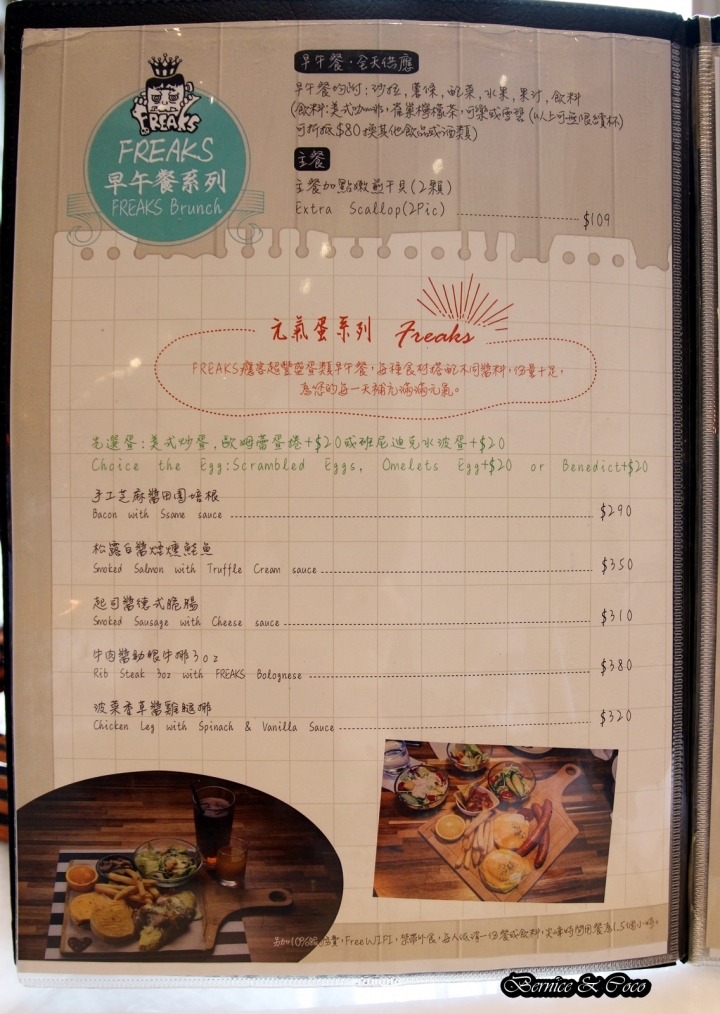 FREAKS
FREAKS
早午餐系列
FREAKS Brunch
早午餐·全天供應
早午餐均附:沙拉,薯條,配菜,水果,果汁,飲料
(飲料:美式咖啡,蜂巢檸檬茶,可樂或雪碧(以上可無限續杯)
可折抵$80換其他飲品或酒類)
主餐
主餐加點嫩煎干貝(2顆)
Extra Scallop(2Pic) $109
元氣蛋系列 Freaks
FREAKS癮客超豐盛蛋類早午餐,每種食材搭配不同醬料,份量十足,
為您的每一天補充滿滿元氣。
先選蛋:美式炒蛋,歐姆蕾蛋捲+$20或班尼迪克水波蛋+$20
Choice the Egg:Scrambled Eggs, Omelets Egg+$20 or Benedict+$20
手工芝麻醬田園培根
Bacon with Ssame sauce $290
松露白醬煙燻鮭魚
Smoked Salmon with Truffle Cream sauce $350
起司醬德式脆腸
Smoked Sausage with Cheese sauce $310
牛肉醬肋眼牛排3oz
Rib Steak 3oz with FREAKS Bolognese $380
菠菜香草醬雞腿排
Chicken Leg with Spinach & Vanilla Sauce $320
另加10%服務費,Free WIFI,禁帶外食,每人低消一份餐或飲料,尖峰時間用餐為1.5個小時。
Bernice & Coco